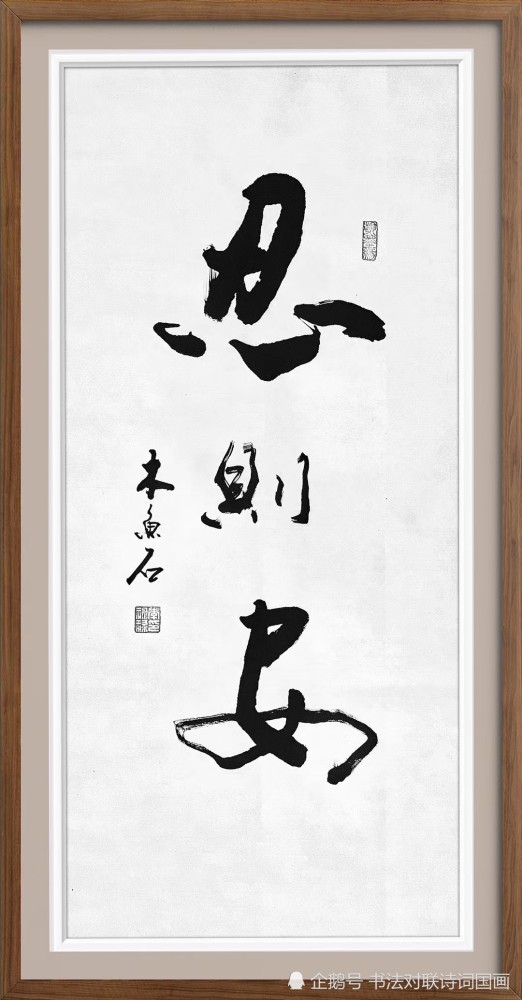 忍則安
木魚石
企鹅号 书法对联诗词国画